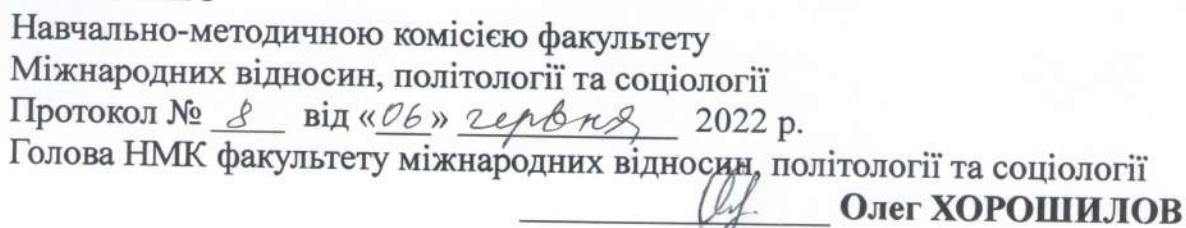 Навчально-методичною комісією факультету
Міжнародних відносин, політології та соціології
Протокол № 8 від «06» червня 2022 р.
Голова НМК факультету міжнародних відносин, політології та соціології
Олег ХОРОШИЛОВ